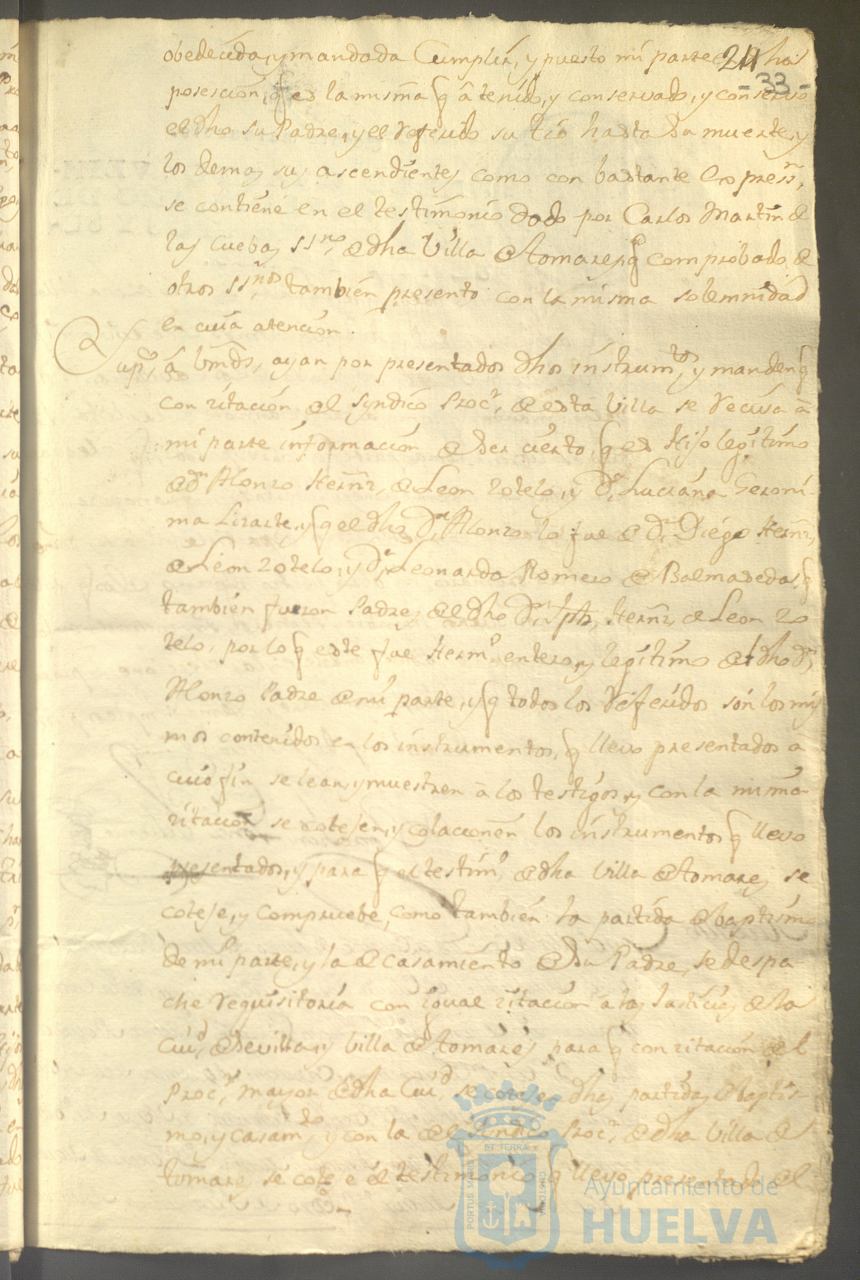 obedecida, y mandada Cumplir, y puesto mi parte 24 has
- 33 -
poseción, q es la misma q â tenido, y conservado, y conservo
el dho su Padre, y el referido su tio hasta su muerte, y
los demas sus ascendientes como con bastante expressn,
se contiene en el testimonio dado por Carlos Martin de
las Cuebas ssno, de dha Villa de Tomares, q comprobado de
otros ssnos, también presento con la misma solemnidad
en cuia atencion.
Supco, â Vmds, ayan por presentados dhos instrumtos, y manden q
con citación del Syndico Procr, de esta Villa se reciva â
mi parte información de ser cierto, q es Hijo legitimo
de Dn Alonzo Hernz, de Leon Zotelo, y Da, Luciana Geroni-
ma Lizarte, y q el dho Dn Alonzo lo fue de Dn Diego Hernz,
de Léon Zotelo, y Da, Leonarda Romero de Balmasedas, q
también fueron Padres del dho Dn, Jph, Hernz, de Leon Zo
telo, por lo q este fue Hermo, entero, y legitimo del dho Dn,
Alonzo Padre de mi parte, y q todos los referidos són los mis
mos contenidos en los instrumentos, q llevo presentados a
cuio fin se lean, y muestren â los testigos, y con la misma
citación se cotejen, y colacionen los instrumentos q llevo
presentados, y para q el testimo, de dha Villa de Tomares se
coteje, y compruebe, como también la partida de baptismo
de mi parte, y la de casamiento de su Padre, se despa-
che requisitoria con igual citación a las Justicias de la
Ciud, de Sevilla, y Villa de Tomares para q con citación del
Procr, mayor de dha Ciud, se cotejen dhas partidas de baptis-
mo, y casamto, y con la del Syndico Procr, de dha Villa de
Tomares se coteje el testimonio q llevo presentado del
ET TERRÆ
PORTUS MARIS
CUSTODIA
Ayuntamiento de
HUELVA